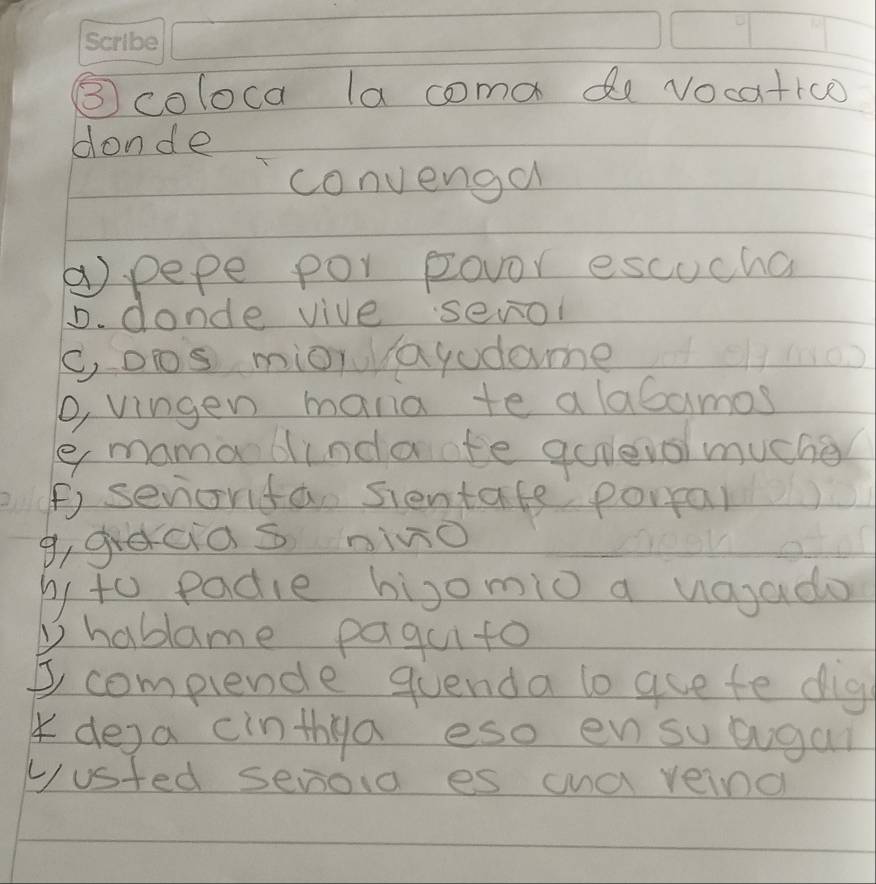 Scribe
3 coloca la coma de vocatico
donde
convenga
a) pepe por pavor escucha
b. donde vive señor
c, Dios mior ayudame
D, vingen maria te alabamos
e, mama linda te quiero mucho
F) señorita sientate porfar
g, gracias niño
h, tu padre hijo mio a
i) hablame paquito
J, comprende quenda lo que te dig
K deja cinthya eso en su lugar
L, usted señora es una reina